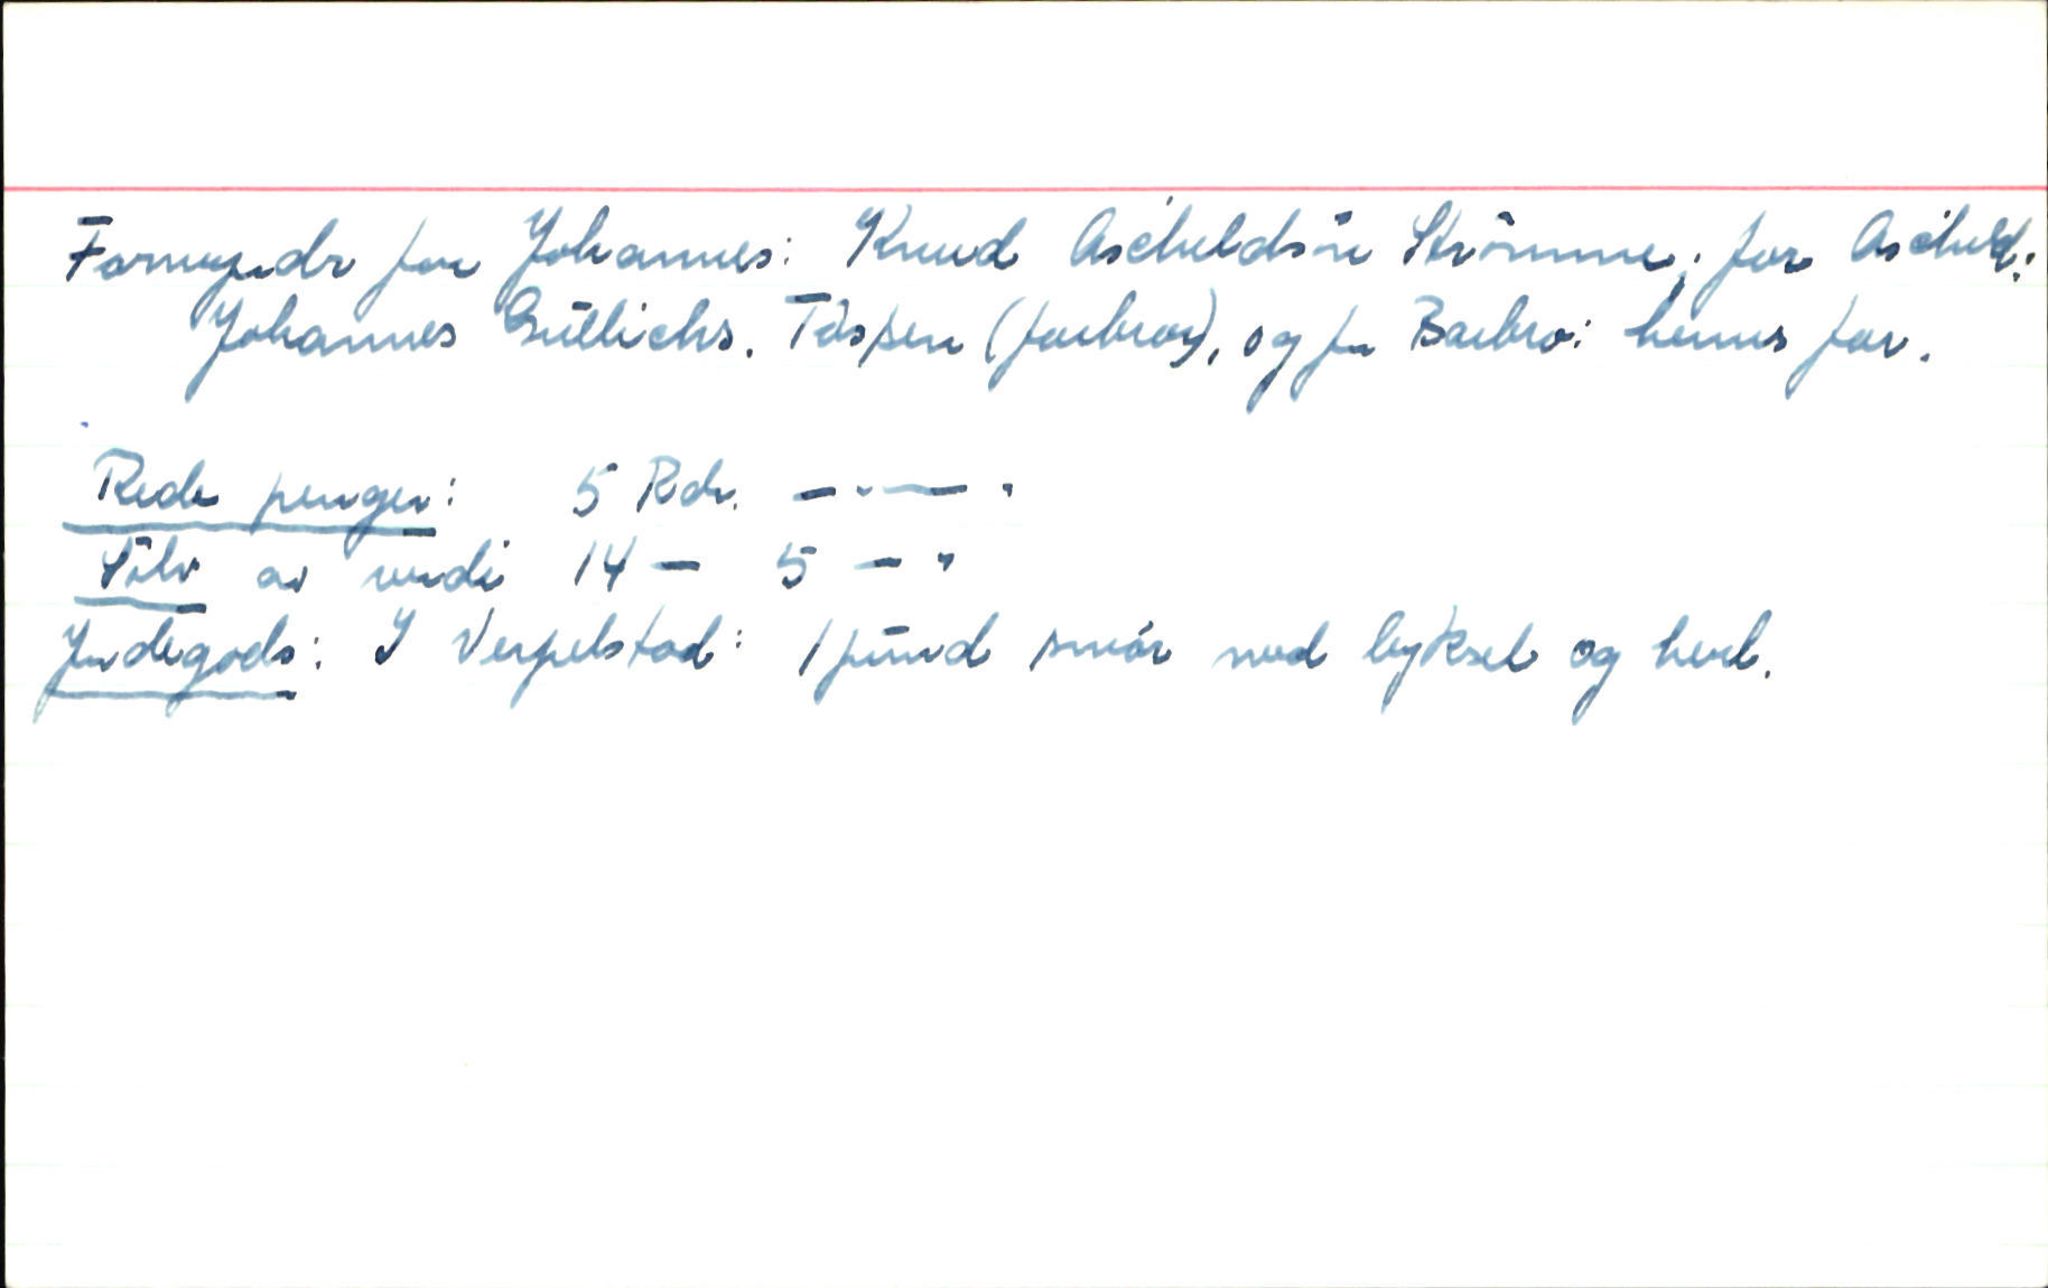 Formyndr for Johannes: Knud Ascheldsön Strömme; for Ascheld:
Johannes Gullichs. Tåsper (farbror), og for Barbro: hennes far.
Rede penger: 5 Rdr. — " — "
Sölv av verdi 14 — 5 — "
Jordegods: I Verpelstad: 1 pund smör med byksel og herl.